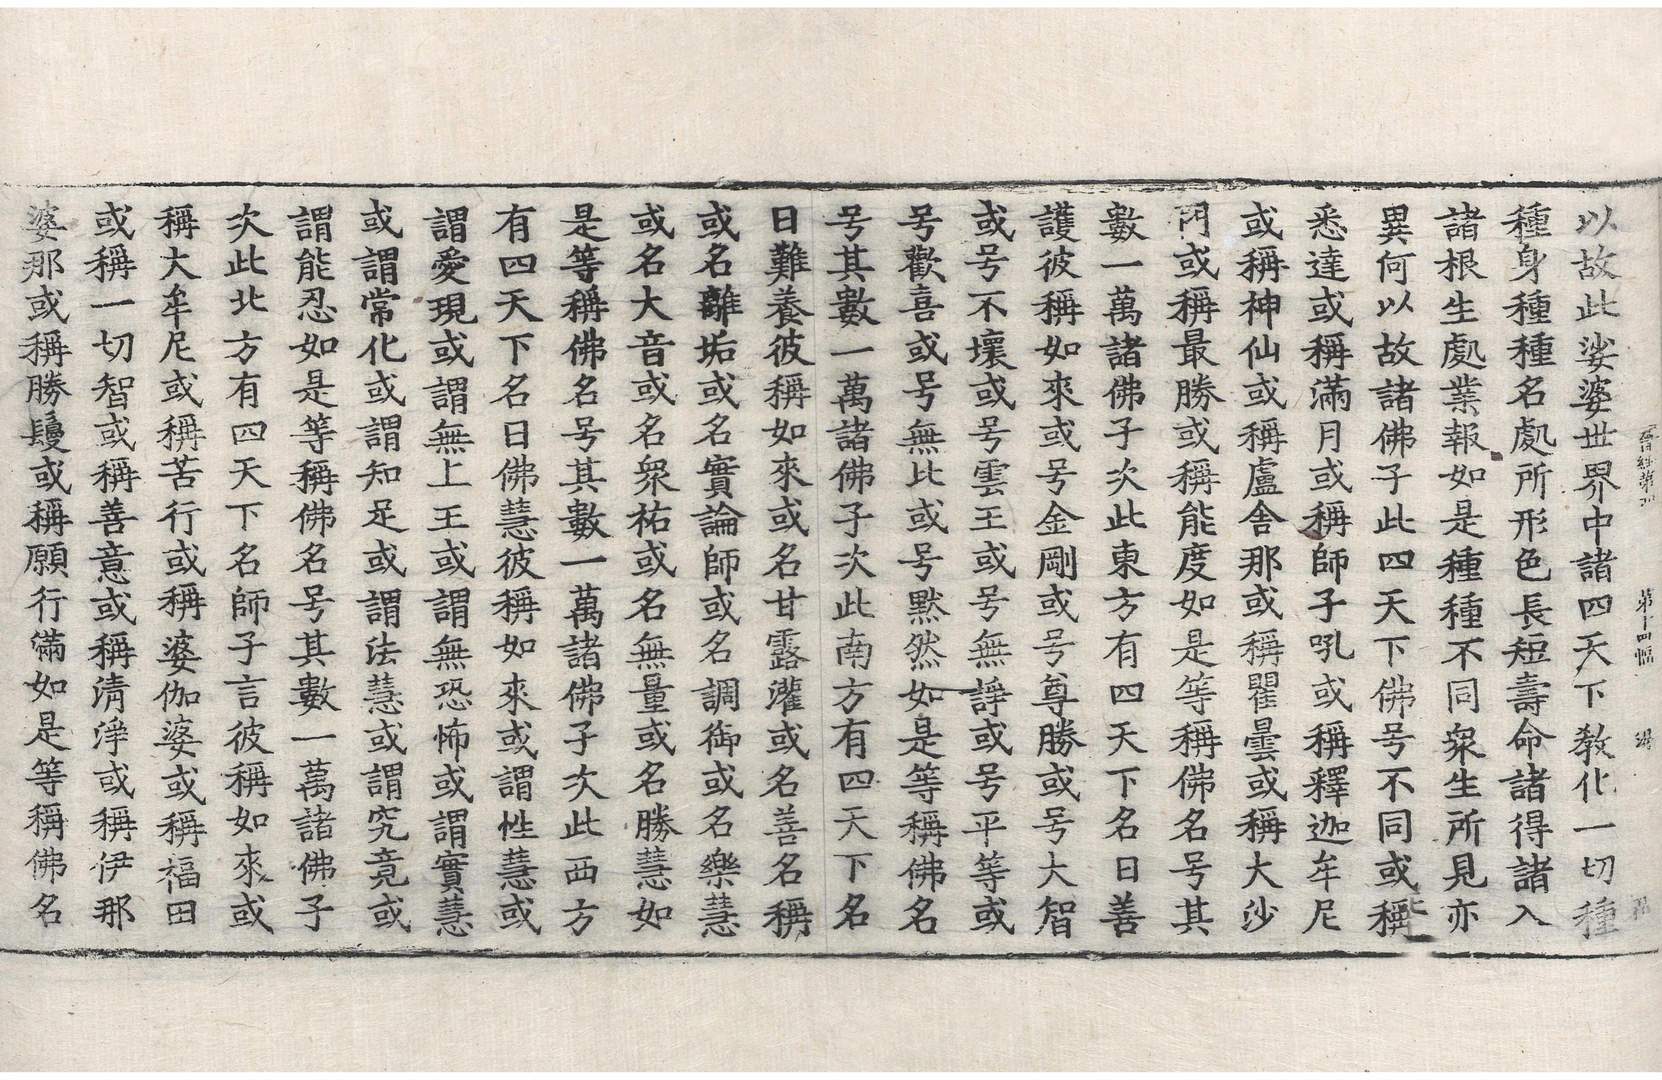 晉經第
第十四幅
以故此娑婆世界中諸四天下教化一切種
種身種種名處所形色長短壽命諸得諸入
諸根生處業報如是種種不同衆生所見亦
異何以故諸佛子此四天下佛号不同或稱
悉達或稱滿月或稱師子吼或稱釋迦牟尼
或稱神仙或稱盧舍那或稱瞿曇或稱大沙
門或稱最勝或稱能度如是等稱佛名号其
數一萬諸佛子次此東方有四天下名曰善
護彼稱如來或号金剛或号尊勝或号大智
或号不壞或号雲王或号無諍或号平等或
号歡喜或号無比或号黙然如是等稱佛名
号其數一萬諸佛子次此南方有四天下名
曰難養彼稱如來或名甘露灌或名善名稱
或名離垢或名實論師或名調御或名樂慧
或名大音或名衆祐或名無量或名勝慧如
是等稱佛名号其數一萬諸佛子次此西方
有四天下名曰佛慧彼稱如來或謂性慧或
謂愛現或謂無上王或謂無恐怖或謂實慧
或謂常化或謂知足或謂法慧或謂究竟或
謂能忍如是等稱佛名号其數一萬諸佛子
次此北方有四天下名師子言彼稱如來或
稱大牟尼或稱苦行或稱婆伽婆或稱福田
或稱一切智或稱善意或稱清淨或稱伊那
婆那或稱勝鬘或稱願行滿如是等稱佛名